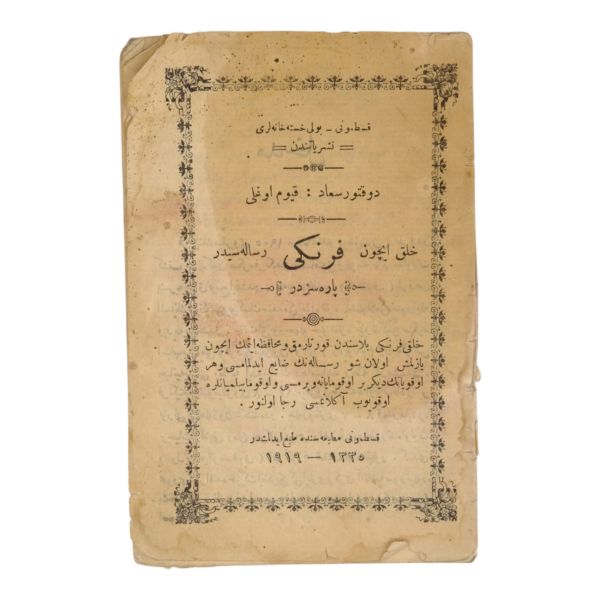 قسطمونی - بولی خسته خانه‌لری
نشریاتندن
دوقتور سعاد : قیوم اوغلی
خلق ایچون فرنکی رساله سیدر
پاره سزدر
خلقی فرنکی بلاسندن قورتارمق و محافظه ایتمك ایچون
یازلمش اولان شو رساله‌نك ضایع ایدلمامسی و هر
اوقویانك دیکر بر اوقومایانه ویرمسی و اوقومابیلمیانلره
اوقویوب آكلاتمسی رجا اولنور .
قسطمونی مطبعه سنده طبع ایدلمشدر
١٣٣٥ — ١٩١٩